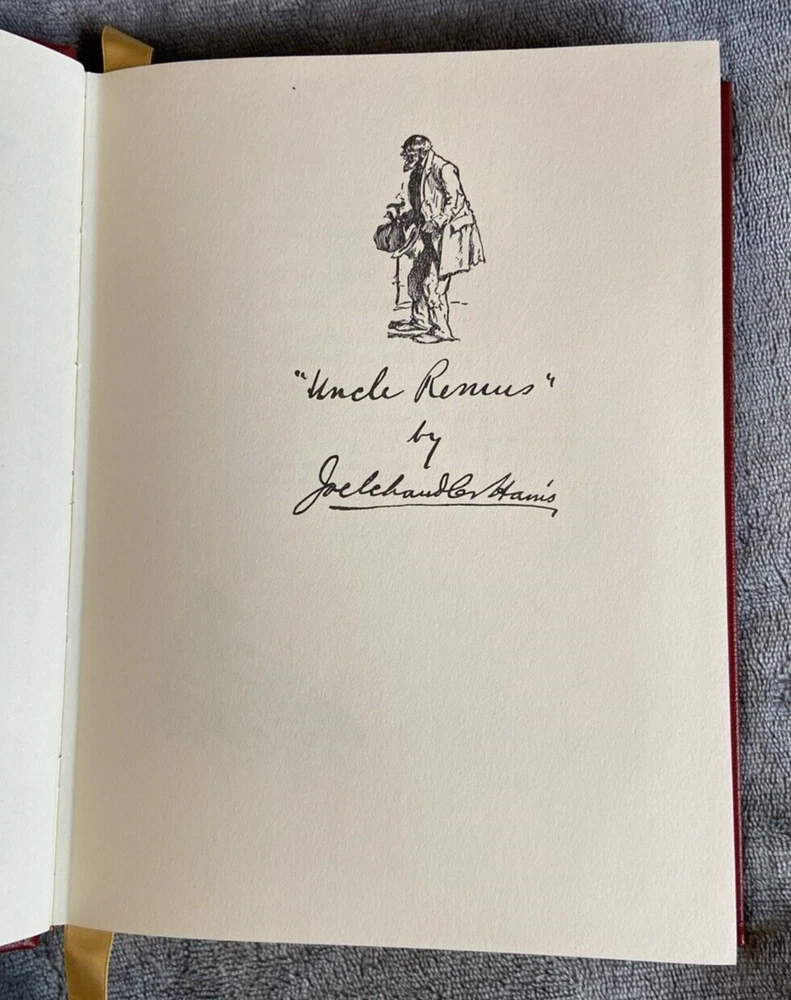 "Uncle Remus"
by
Joel Chandler Harris